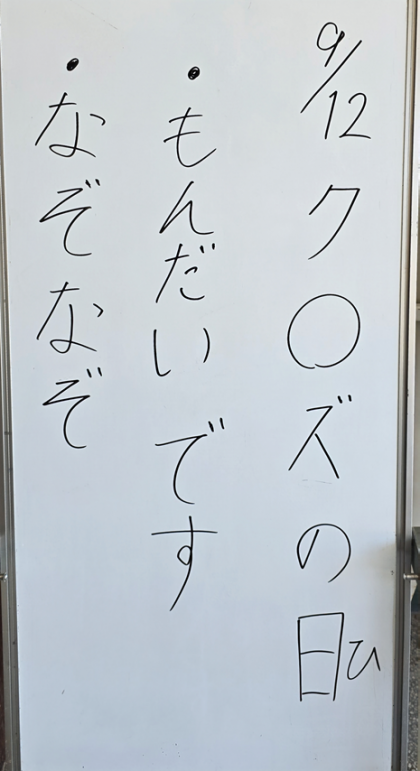 9/12 ク○ズの日ひ
・もんだいです
・なぞなぞ